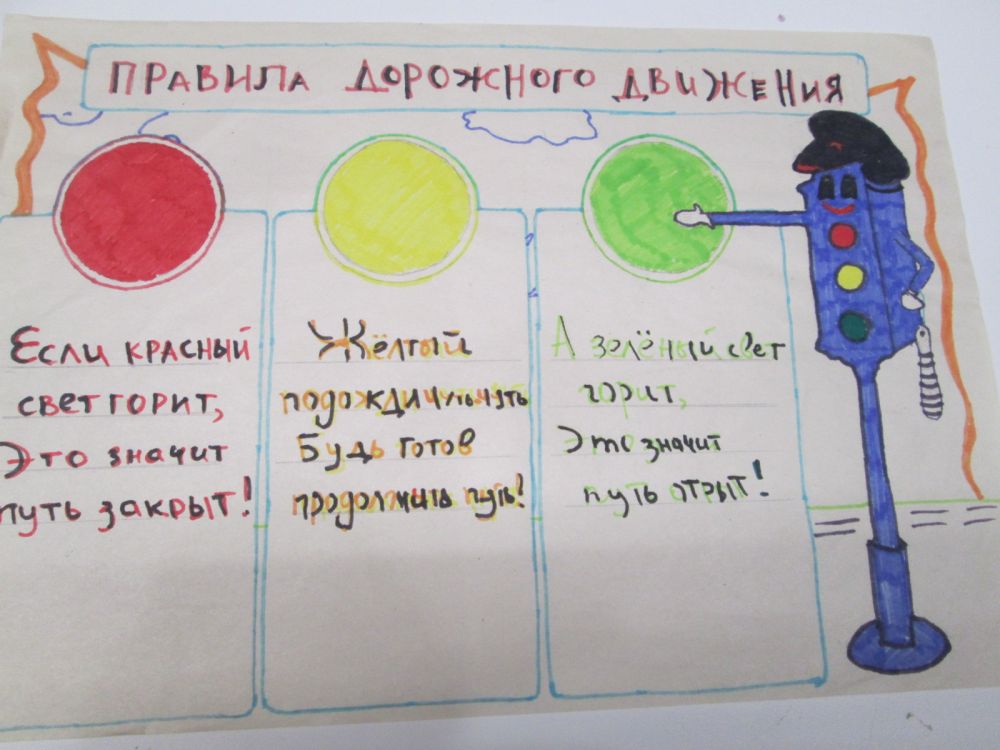 ПРАВИЛА ДОРОЖНОГО ДВИЖЕНИЯ
Если красный
свет горит,
Это значит
путь закрыт!
Жёлтый
подожди чуть чуть
Будь готов
продолжить путь!
А зелёный свет
горит,
Это значит
путь отрыт!